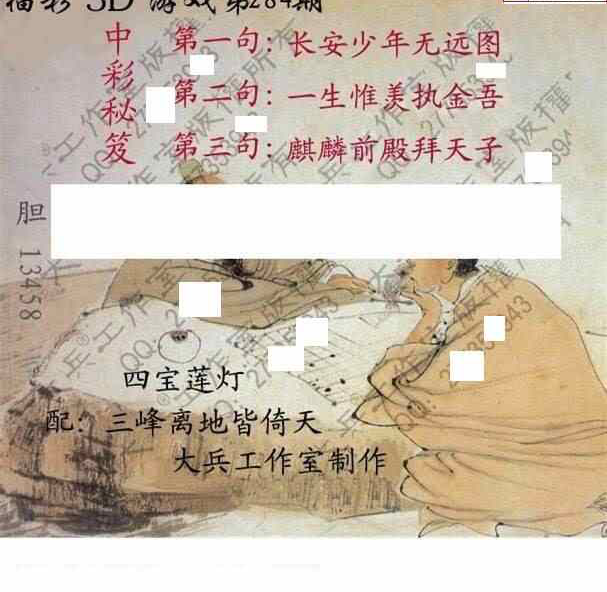 福彩 3D 游戏第284期
中彩秘笈
第一句：长安少年无远图
第二句：一生惟羡执金吾
第三句：麒麟前殿拜天子
胆 13458
四宝莲灯
配：三峰离地皆倚天
大兵工作室制作